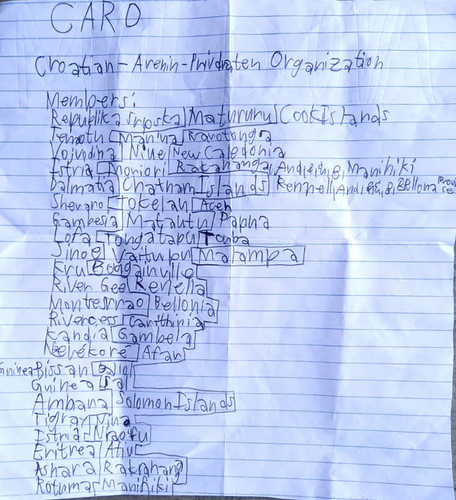 CARO
Croatian-Arenin- Organization
Members:
Republika Srpska Maturunu Cook Islands
Temotu Manina Rarotonga
Vojvudina Niue New Caledonia
Istria Moriori Rakahanga, Manihiki
Dalmatia Chatham Islands Rennell, Bellona Province
Shevaro Tokelau Aceh
Gambesia Matautu Papua
Lofa Tongatapu Tomba
Sinoe Vaitupu Malampa
Kru Bougainville
River Gee Renella
Montserrado Bellonia
Rivercess Carithinia
Kandia Gambela
Nzérékoré Afar
Guinea Bissau
Guinea
Ambana Solomon Islands
Tigray Niua
Istria
Eritrea Atiu
Ashara Rakahang
Rotuma Manihiki